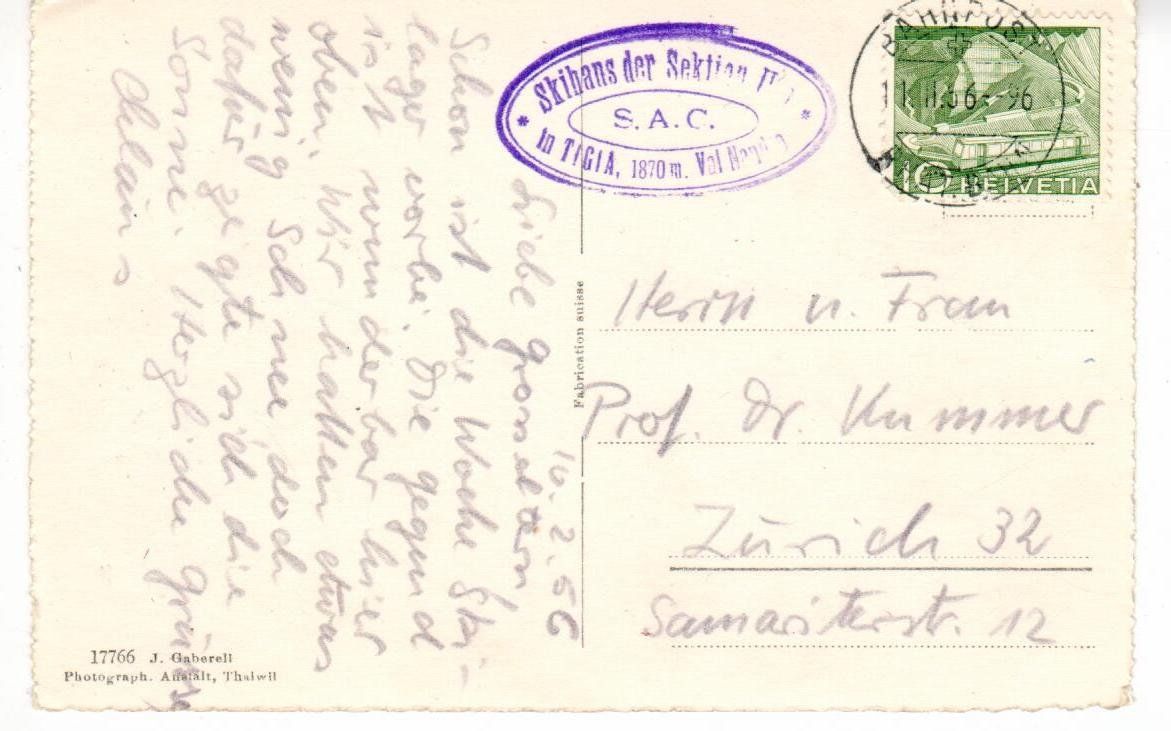 Skihaus der Sektion
S.A.C.
in TIGIA, 1870 m. Val
BAHNPOST
11.II.56-96
10 HELVETIA
10. 2. 56
Liebe Grosseltern
Schon ist die Woche Ski-
lager vorbei. Die Gegend
ist wunderbar hier
oben. Wir hatten etwas
wenig Schnee doch
dafür zeigte sich die
Sonne. Herzliche Grüsse
Fabrication suisse
Herrn u. Frau
Prof. Dr. Kummer
Zürich 32
Samariterstr. 12
17766 J. Gaberell
Photograph. Anstalt, Thalwil